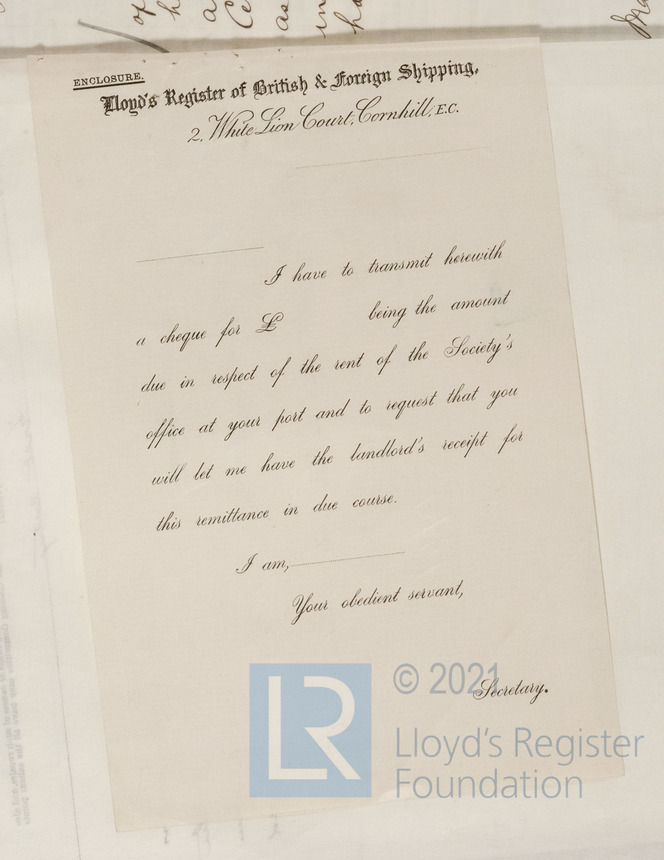 ENCLOSURE.
Lloyd's Register of British & Foreign Shipping.
2, White Lion Court, Cornhill, E.C.
I have to transmit herewith
a cheque for £ being the amount
due in respect of the rent of the Society's
office at your port and to request that you
will let me have the landlord's receipt for
this remittance in due course.
I am,
Your obedient servant,
Secretary.
LR
© 2021
Lloyd's Register
Foundation